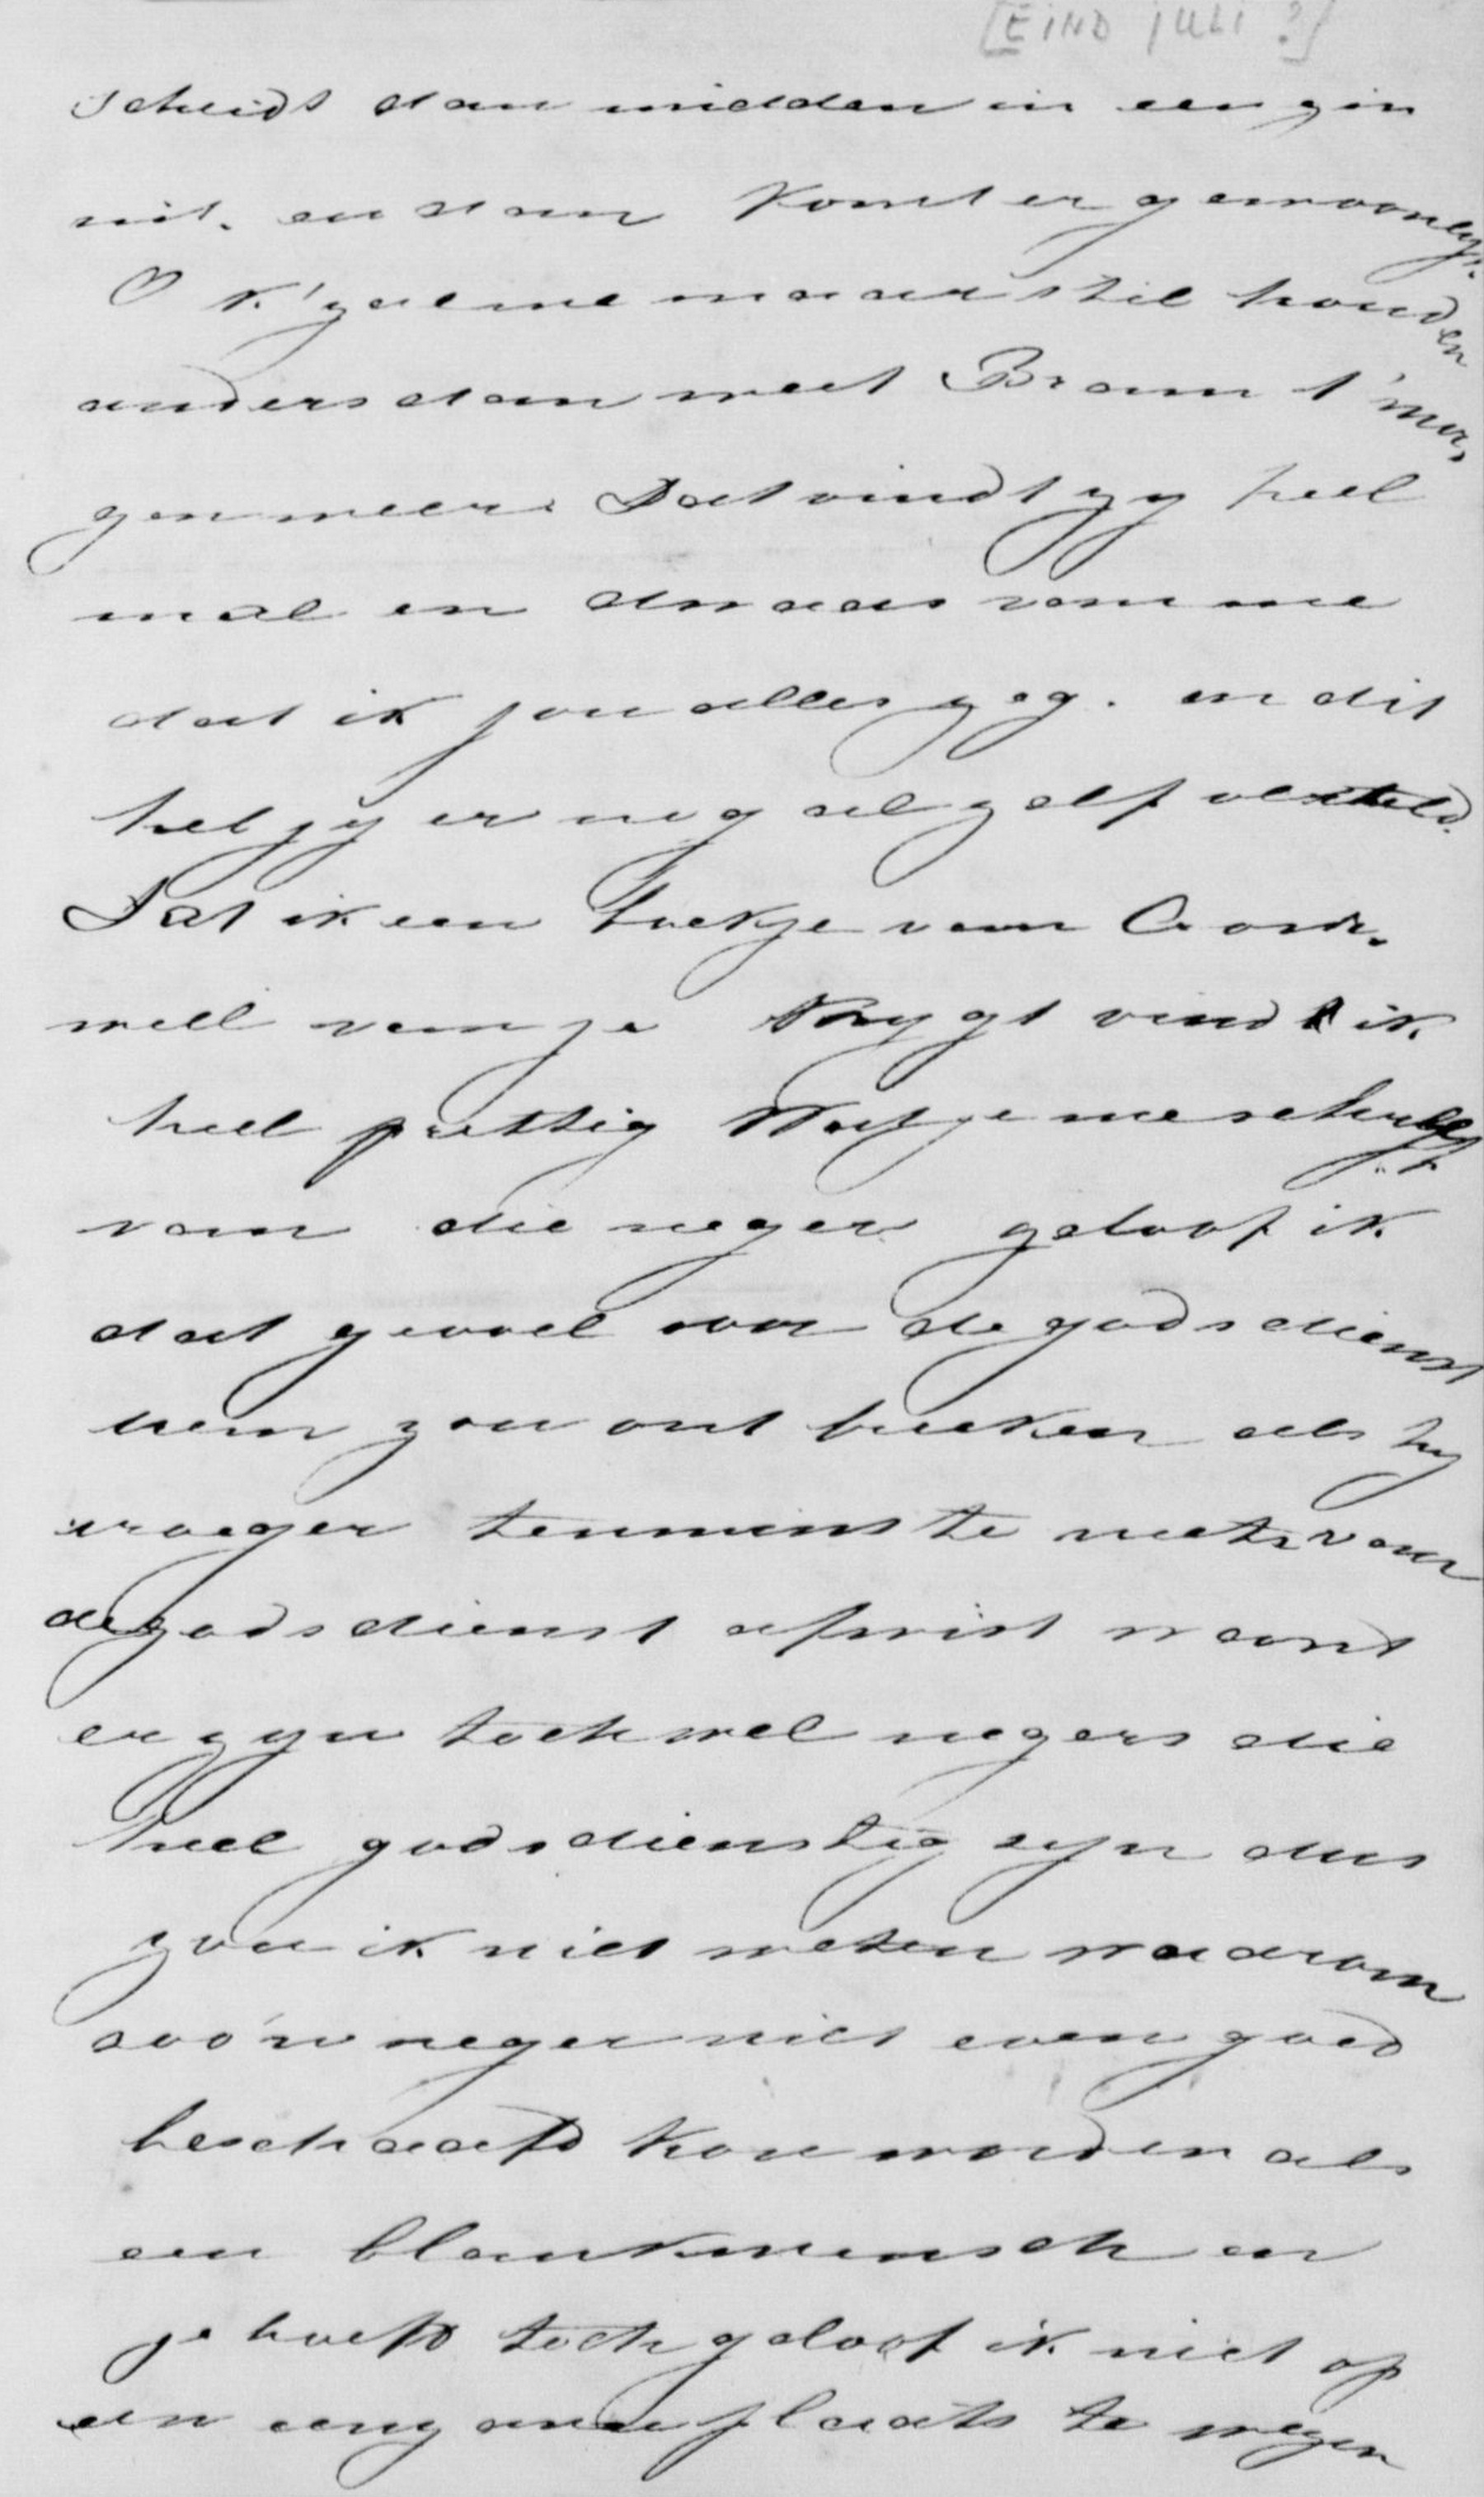 [EIND JULI ?]
scheidt dan midden in een zin
uit. en dan komt er gewoonlijk
O k'zal me maar stil houden
anders dan weet Bram 't mor,
gen weer. Dat vindt zy heel
mal en dwaas van me
dat ik jou alles zeg. en dit
heb jy er nog al zelf verteld.
Dat ik een boekje van Crom,
well van je krygt vind ik
heel prettig Wat je me schryft
van die neger geloof ik
dat gevoel voor de godsdienst
hem zou ont breken als hy
vroeger tenminste niets van
de godsdienst afwist want
er zyn toch wel negers die
heel godsdienstig zyn dus
zou ik niet weten waarom
zoo'n neger niet even goed
beschaafd kon worden als
een blank mensch en
je hoeft toch geloof ik niet op
een plaats te wezen